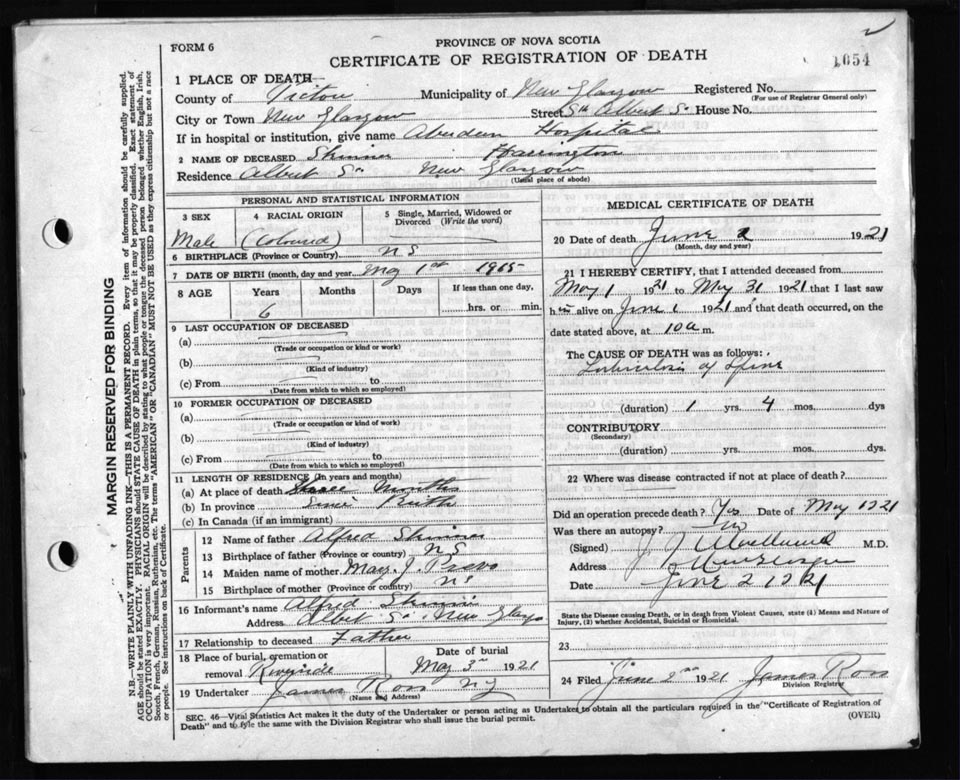 1054
FORM 6
PROVINCE OF NOVA SCOTIA
CERTIFICATE OF REGISTRATION OF DEATH
1 PLACE OF DEATH—
County of Pictou Municipality of New Glasgow Registered No.
(For use of Registrar General only)
City or Town New Glasgow Street Sth Albert St House No.
If in hospital or institution, give name Aberdeen Hospital
2 NAME OF DECEASED Skinner Harrington
Residence Albert St New Glasgow
(Usual place of abode)
PERSONAL AND STATISTICAL INFORMATION
3 SEX
4 RACIAL ORIGIN
5 Single, Married, Widowed or Divorced (Write the word)
Male (Coloured)
6 BIRTHPLACE (Province or Country) N S
7 DATE OF BIRTH (month, day and year) May 1st 1915
8 AGE Years Months Days If less than one day,
6 hrs. or min.
9 LAST OCCUPATION OF DECEASED
(a)
(Trade or occupation or kind or work)
(b)
(Kind of industry)
(c) From to
(Date from which to which so employed)
10 FORMER OCCUPATION OF DECEASED
(a)
(Trade or occupation or kind of work)
(b)
(Kind of industry)
(c) From to
(Date from which to which so employed)
11 LENGTH OF RESIDENCE (In years and months)
(a) At place of death months
(b) In province Since Birth
(c) In Canada (if an immigrant)
Parents
12 Name of father Alfred Skinner
13 Birthplace of father (Province or country) N S
14 Maiden name of mother May J.
15 Birthplace of mother (Province or country) N S
16 Informant's name Alfred Skinner
Address Albert St New Glasgow
17 Relationship to deceased Father
18 Place of burial, cremation or removal Riverside
Date of burial May 3rd 1921
19 Undertaker James Ross N G
(Name and Address)
MEDICAL CERTIFICATE OF DEATH
20 Date of death June 2 1921
(Month, day and year)
21 I HEREBY CERTIFY, that I attended deceased from
May 1 1921 to May 31 1921 that I last saw
him alive on June 1 1921 and that death occurred, on
date stated above, at 10 a m.
The CAUSE OF DEATH was as follows:
Tuberculosis of Spine
(duration) 1 yrs. 4 mos. dys
CONTRIBUTORY
(Secondary)
(duration) yrs. mos. dys.
22 Where was disease contracted if not at place of death?
Did an operation precede death? Yes Date of May 1921
Was there an autopsy? No
(Signed) M.D.
Address New Glasgow
Date June 2 1921
State the Disease causing Death, or in death from Violent Causes, state (1) Means and Nature of Injury, (2) whether Accidental, Suicidal or Homicidal.
23
24 Filed June 2nd 1921 James Ross
Division Registrar
SEC. 46—Vital Statistics Act makes it the duty of the Undertaker or person acting as Undertaker to obtain all the particulars required in the "Certificate of Registration of
Death" and to file the same with the Division Registrar who shall issue the burial permit.
(OVER)
MARGIN RESERVED FOR BINDING
N.B.—WRITE PLAINLY WITH UNFADING INK—THIS IS A PERMANENT RECORD. Every item of information should be carefully supplied.
AGE should be stated EXACTLY. PHYSICIANS should STATE CAUSE OF DEATH in plain terms, so that it may be properly classified. Exact statement of
OCCUPATION is very important. RACIAL ORIGIN will be described by stating to what people or tongue the deceased person belonged whether English, Irish,
Scotch, French, German, Russian, Ruthenian, etc. The terms "AMERICAN" OR "CANADIAN" MUST NOT BE USED as they express citizenship but not a race
or people. See instructions on back of Certificate.